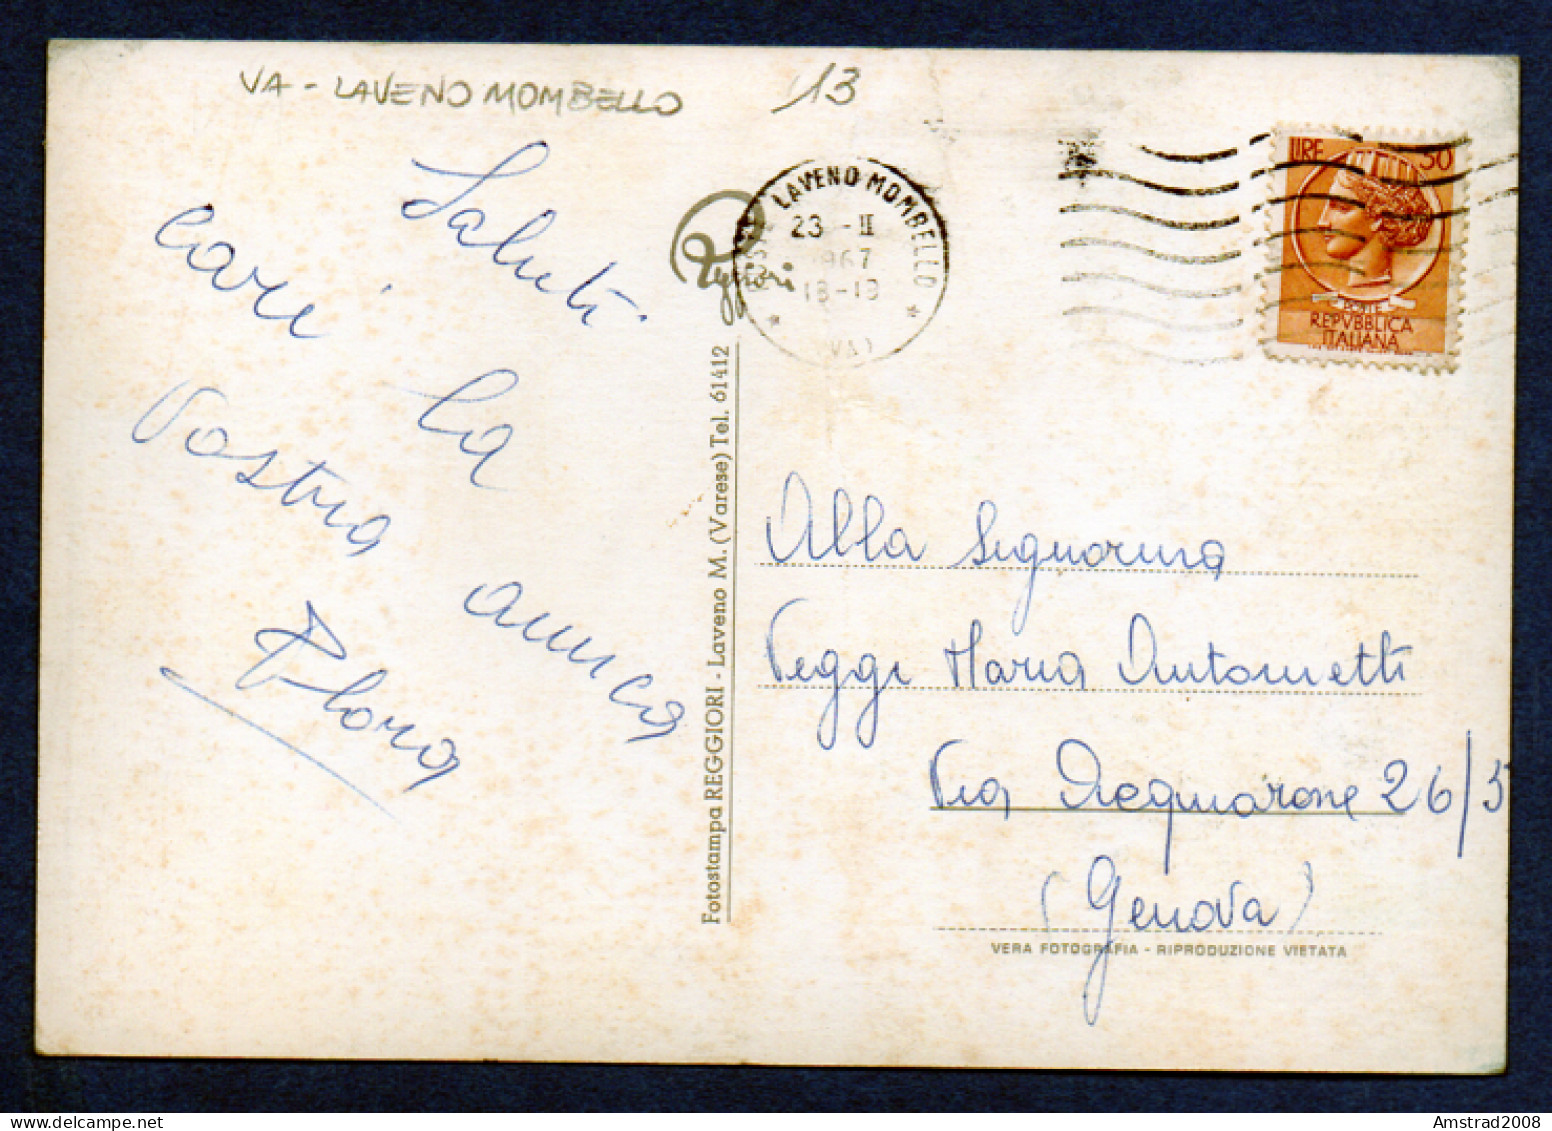 VA - LAVENO MOMBELLO
13
Saluti
cari la
Vostra amica
Flora
Reggiori
POSTE LAVENO MOMBELLO
23 - II
1967
18-19
(VA)
LIRE 50
POSTE
REPVBBLICA
ITALIANA
Fotostampa REGGIORI - Laveno M. (Varese) Tel. 61412
Alla Signorina
Peggi Maria Antonietti
Via Acquarone 26/5
(Genova)
VERA FOTOGRAFIA - RIPRODUZIONE VIETATA
Amstrad2008